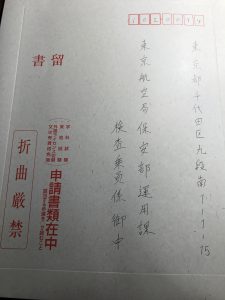 東京都千代田区九段南1-1-15
東京航空局保安部運用課
検査乗員係 御中
書留
申請書類在中
折曲厳禁